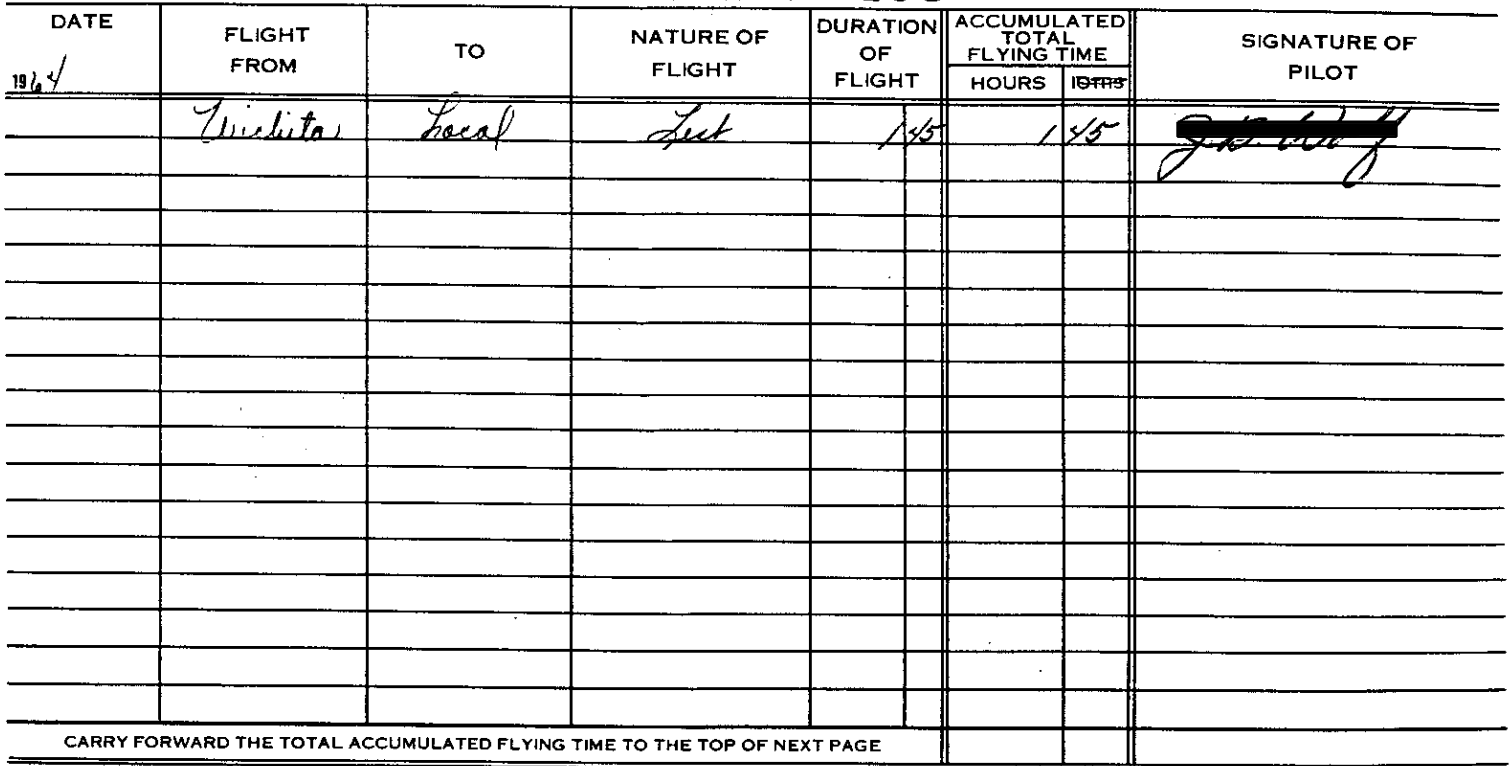 DATE FLIGHT FROM TO NATURE OF FLIGHT DURATION OF FLIGHT ACCUMULATED TOTAL FLYING TIME SIGNATURE OF PILOT
1964 HOURS 10THS
Wichita Local Test 1 45 1 45
CARRY FORWARD THE TOTAL ACCUMULATED FLYING TIME TO THE TOP OF NEXT PAGE